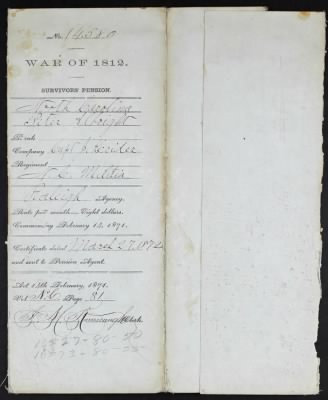 No. 14580
WAR OF 1812.
SURVIVORS' PENSION.
North Carolina
Peter
Rank
Company Capt J.
Regiment
N C Militia
Raleigh Agency.
Rate per month Eight dollars.
Commencing February 14, 1871.
Certificate dated March 27, 1872
and sent to Pension Agent.
Act 14th February, 1871.
Page 81
Clerk.